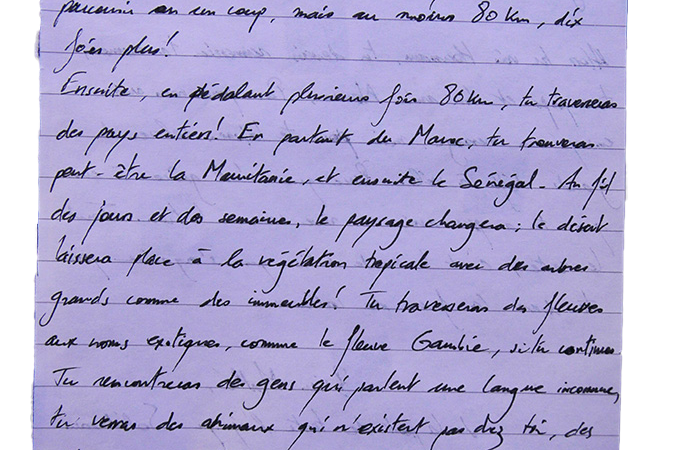 parcourir en un coup, mais au moins 80 km, dix
fois plus!
Ensuite, en pédalant plusieurs fois 80km, tu traverseras
des pays entiers! En partant du Maroc, tu trouveras
peut-être la Mauritanie, et ensuite le Sénégal. Au fil
des jours et des semaines, le paysage changera; le désert
laissera place à la végétation tropicale avec des arbres
grands comme des immeubles! Tu traverseras des fleuves
aux noms exotiques, comme le fleuve Gambie, si tu continues.
Tu rencontreras des gens qui parlent une langue inconnue,
tu verras des animaux qui n'existent pas chez toi, des